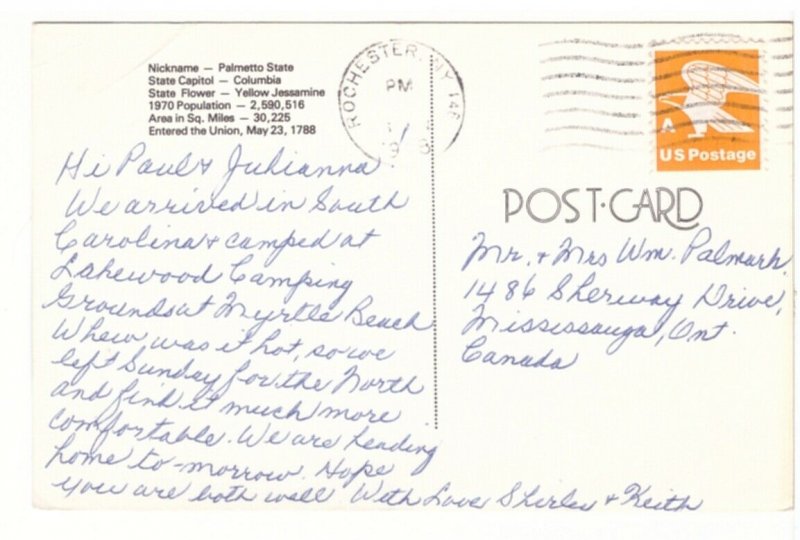 Nickname — Palmetto State
State Capitol — Columbia
State Flower — Yellow Jessamine
1970 Population — 2,590,516
Area in Sq. Miles — 30,225
Entered the Union, May 23, 1788
ROCHESTER, NY 146
PM
A
US Postage
POST·CARD
Hi Paul & Julianna
We arrived in South
Carolina & camped at
Lakewood Camping
Grounds at Myrtle Beach
Whew, was it hot, so we
left Sunday for the North
and find it much more
comfortable. We are heading
home to-morrow. Hope
you are both well With Love Shirley & Keith
Mr. & Mrs Wm. Palmark
1486 Sherway Drive,
Mississauga, Ont.
Canada